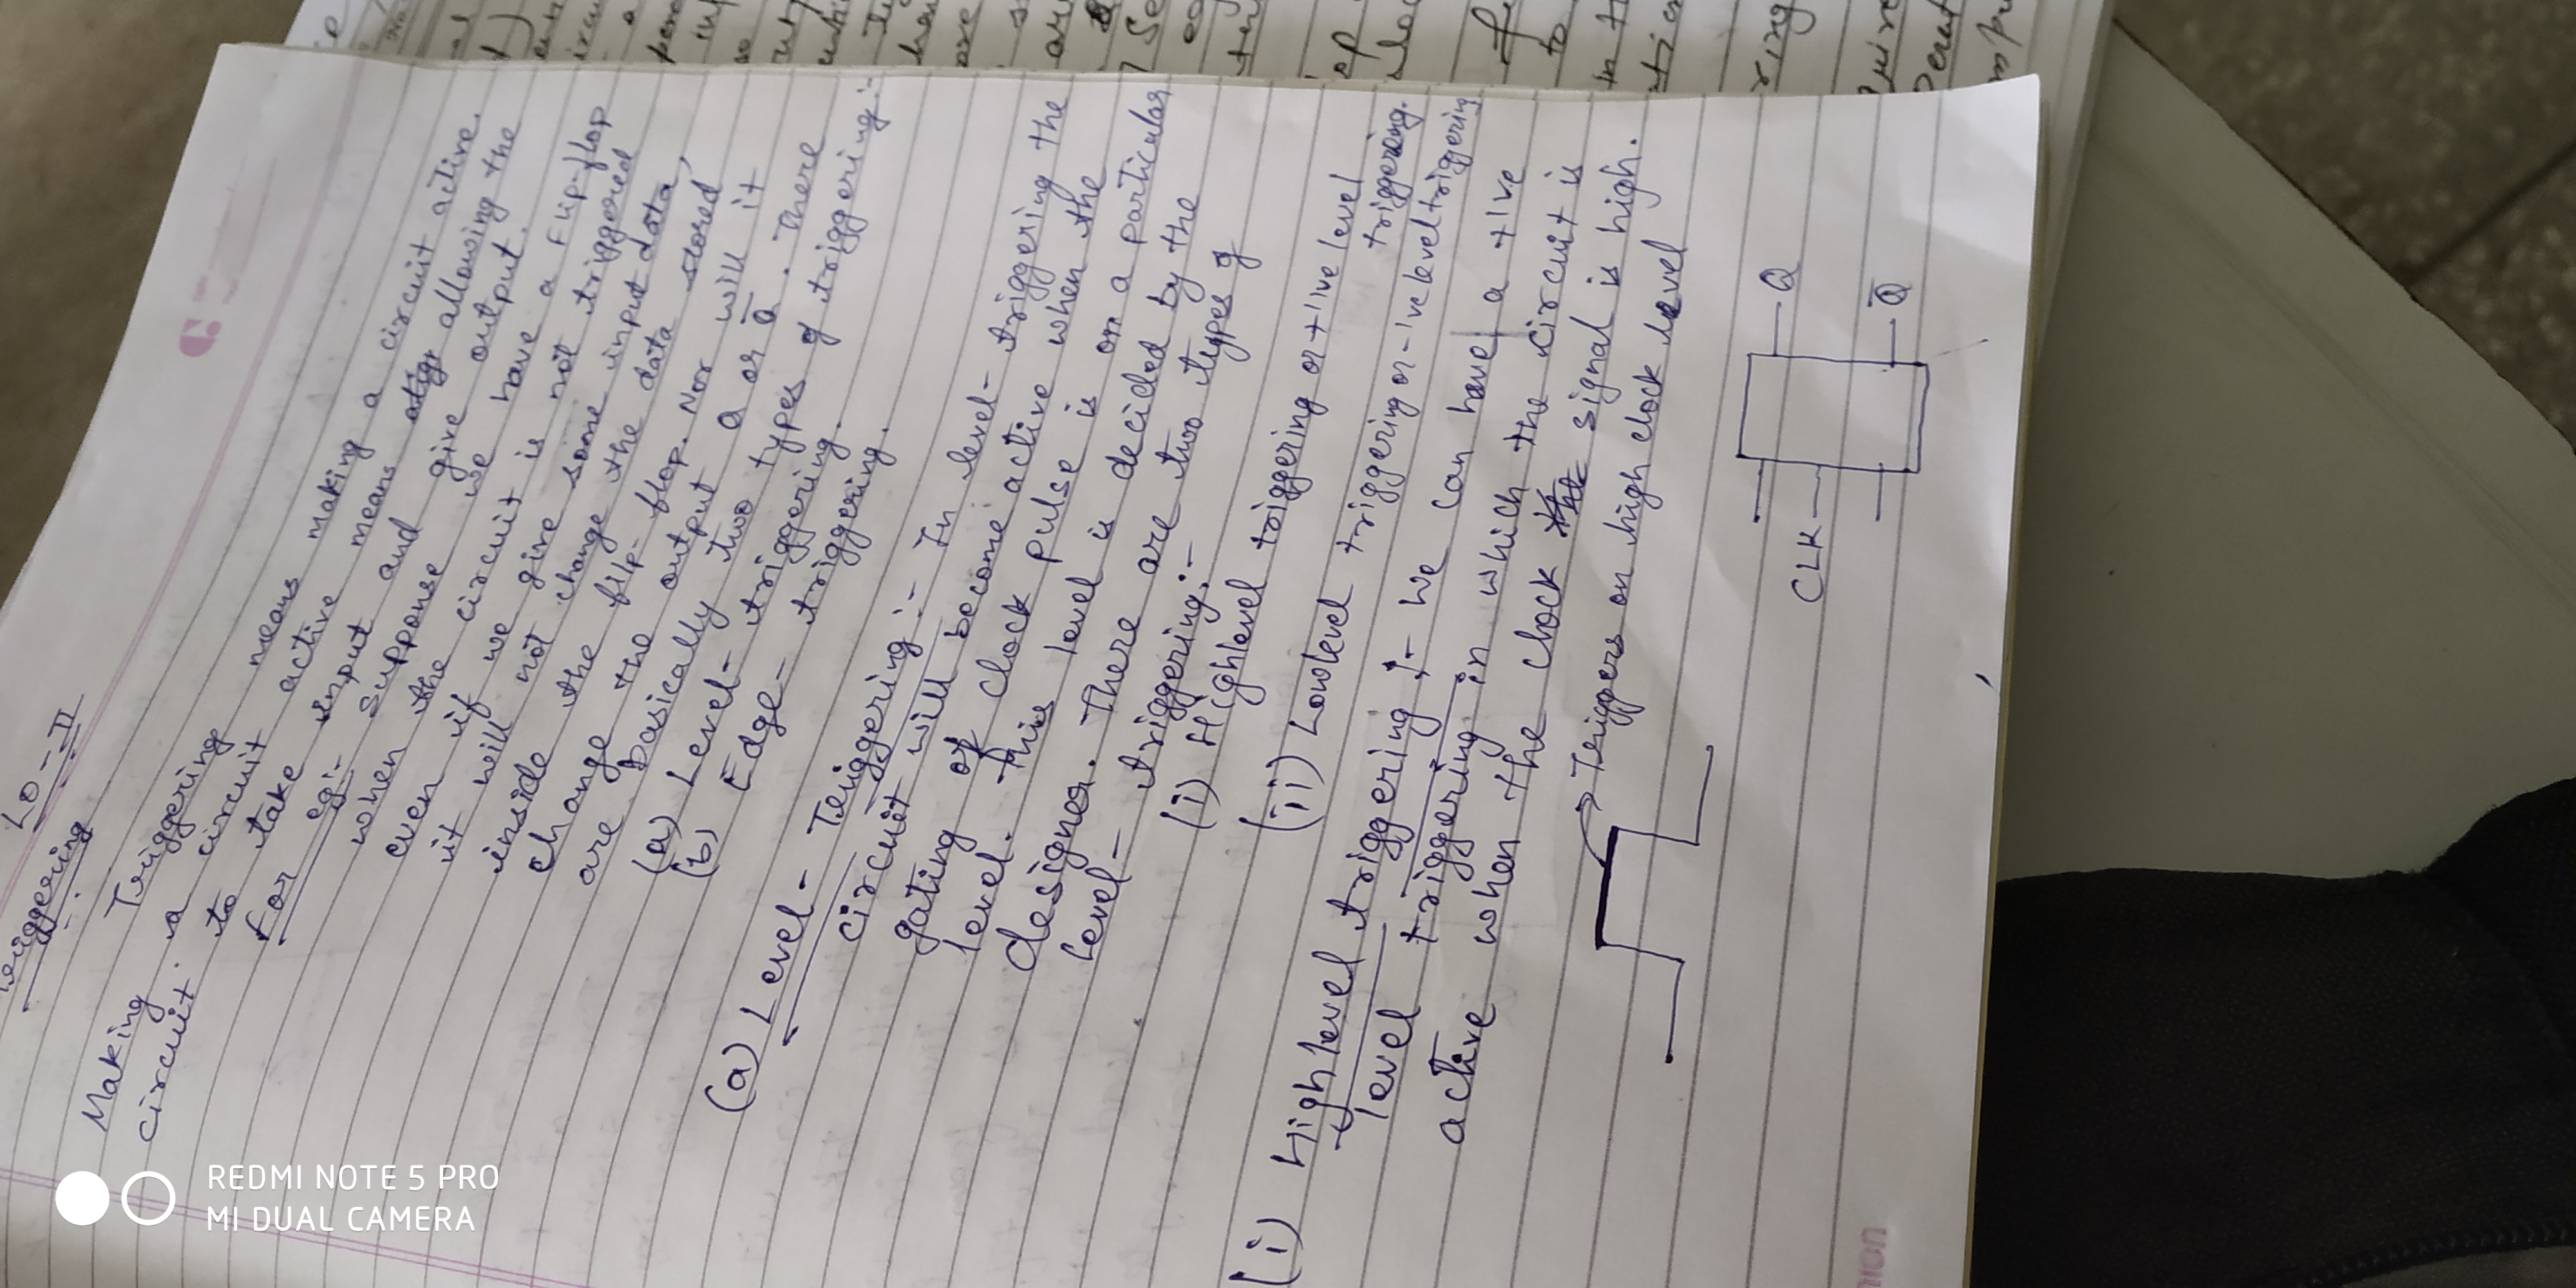 LO - II
Triggering :-
Triggering means making a circuit active.
Making a circuit active means allowing the
circuit to take input and give output.
For eg:- Suppose we have a Flip-flop
when the circuit is not triggered
even if we give some input data,
it will not change the data stored
inside the filp-flop. Nor will it
change the output Q or Q̅. There
are basically two types of triggering:-
(a) Level-triggering.
(b) Edge-triggering.
(a) Level-Triggering :- In level-triggering the
circuit will become active when the
gating or clock pulse is on a particular
level. This level is decided by the
designer. There are two types of
level-triggering:-
(i) Highlevel triggering or +ive level
triggering.
(ii) Lowlevel triggering or -ive level triggering
(i) High level triggering :- We can have a +ive
level triggering in which the circuit is
active when the clock signal is high.
→ Triggers on high clock level
Q
CLK
Q̅
REDMI NOTE 5 PRO
MI DUAL CAMERA